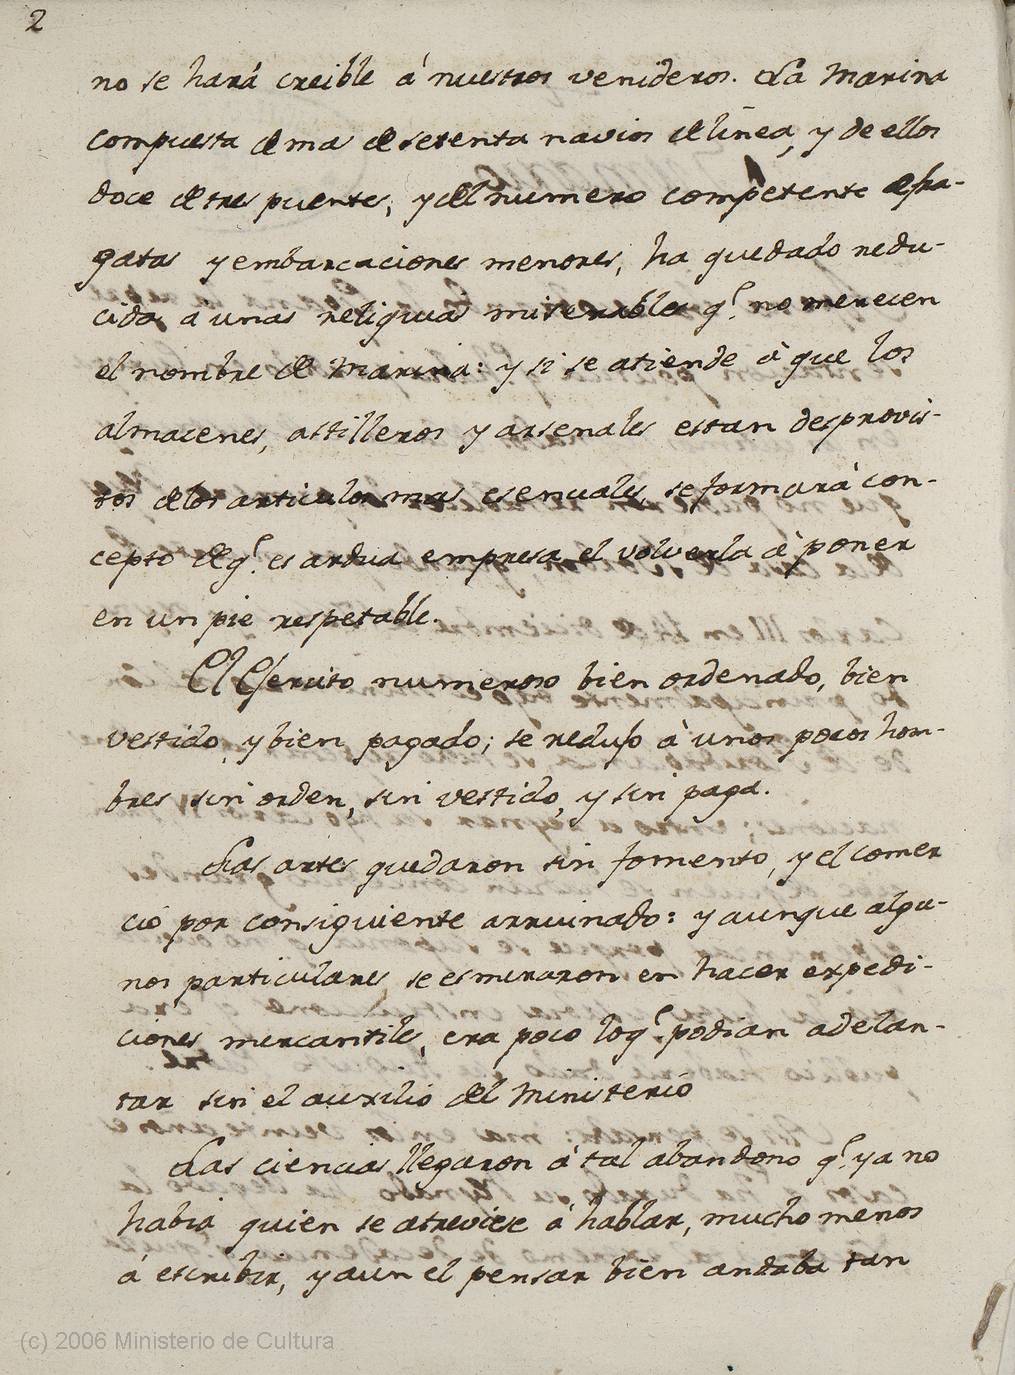 2
no se hará creible á nuestros venideros. La Marina
compuesta de mas de setenta navios de linea, y de ellos
doce de tres puentes, y del numero competente de fra-
gatas y embarcaciones menores, ha quedado redu-
cida á unas reliquias miserables q.e no merecen
el nombre de Marina: y si se atiende á que los
almacenes, astilleros y arsenales estan desprovis-
tos de los articulos mas esenciales, se formará con-
cepto de q.e es ardua empresa el volverla á poner
en un pie respetable.
El Exercito numeroso bien ordenado, bien
vestido, y bien pagado; se reduxo á unos pocos hom-
bres sin orden, sin vestido, y sin paga.
Las artes quedaron sin fomento, y el comer
cio por consiguiente arruinado: y aunque algu-
nos particulares se esmeraron en hacer expedi-
ciones mercantiles, era poco lo q.e podian adelan-
tar sin el auxilio del Ministerio
Las ciencias llegaron á tal abandono q.e ya no
habia quien se atreviese á hablar, mucho menos
á escribir, y aun el pensar bien andaba tan
(c) 2006 Ministerio de Cultura